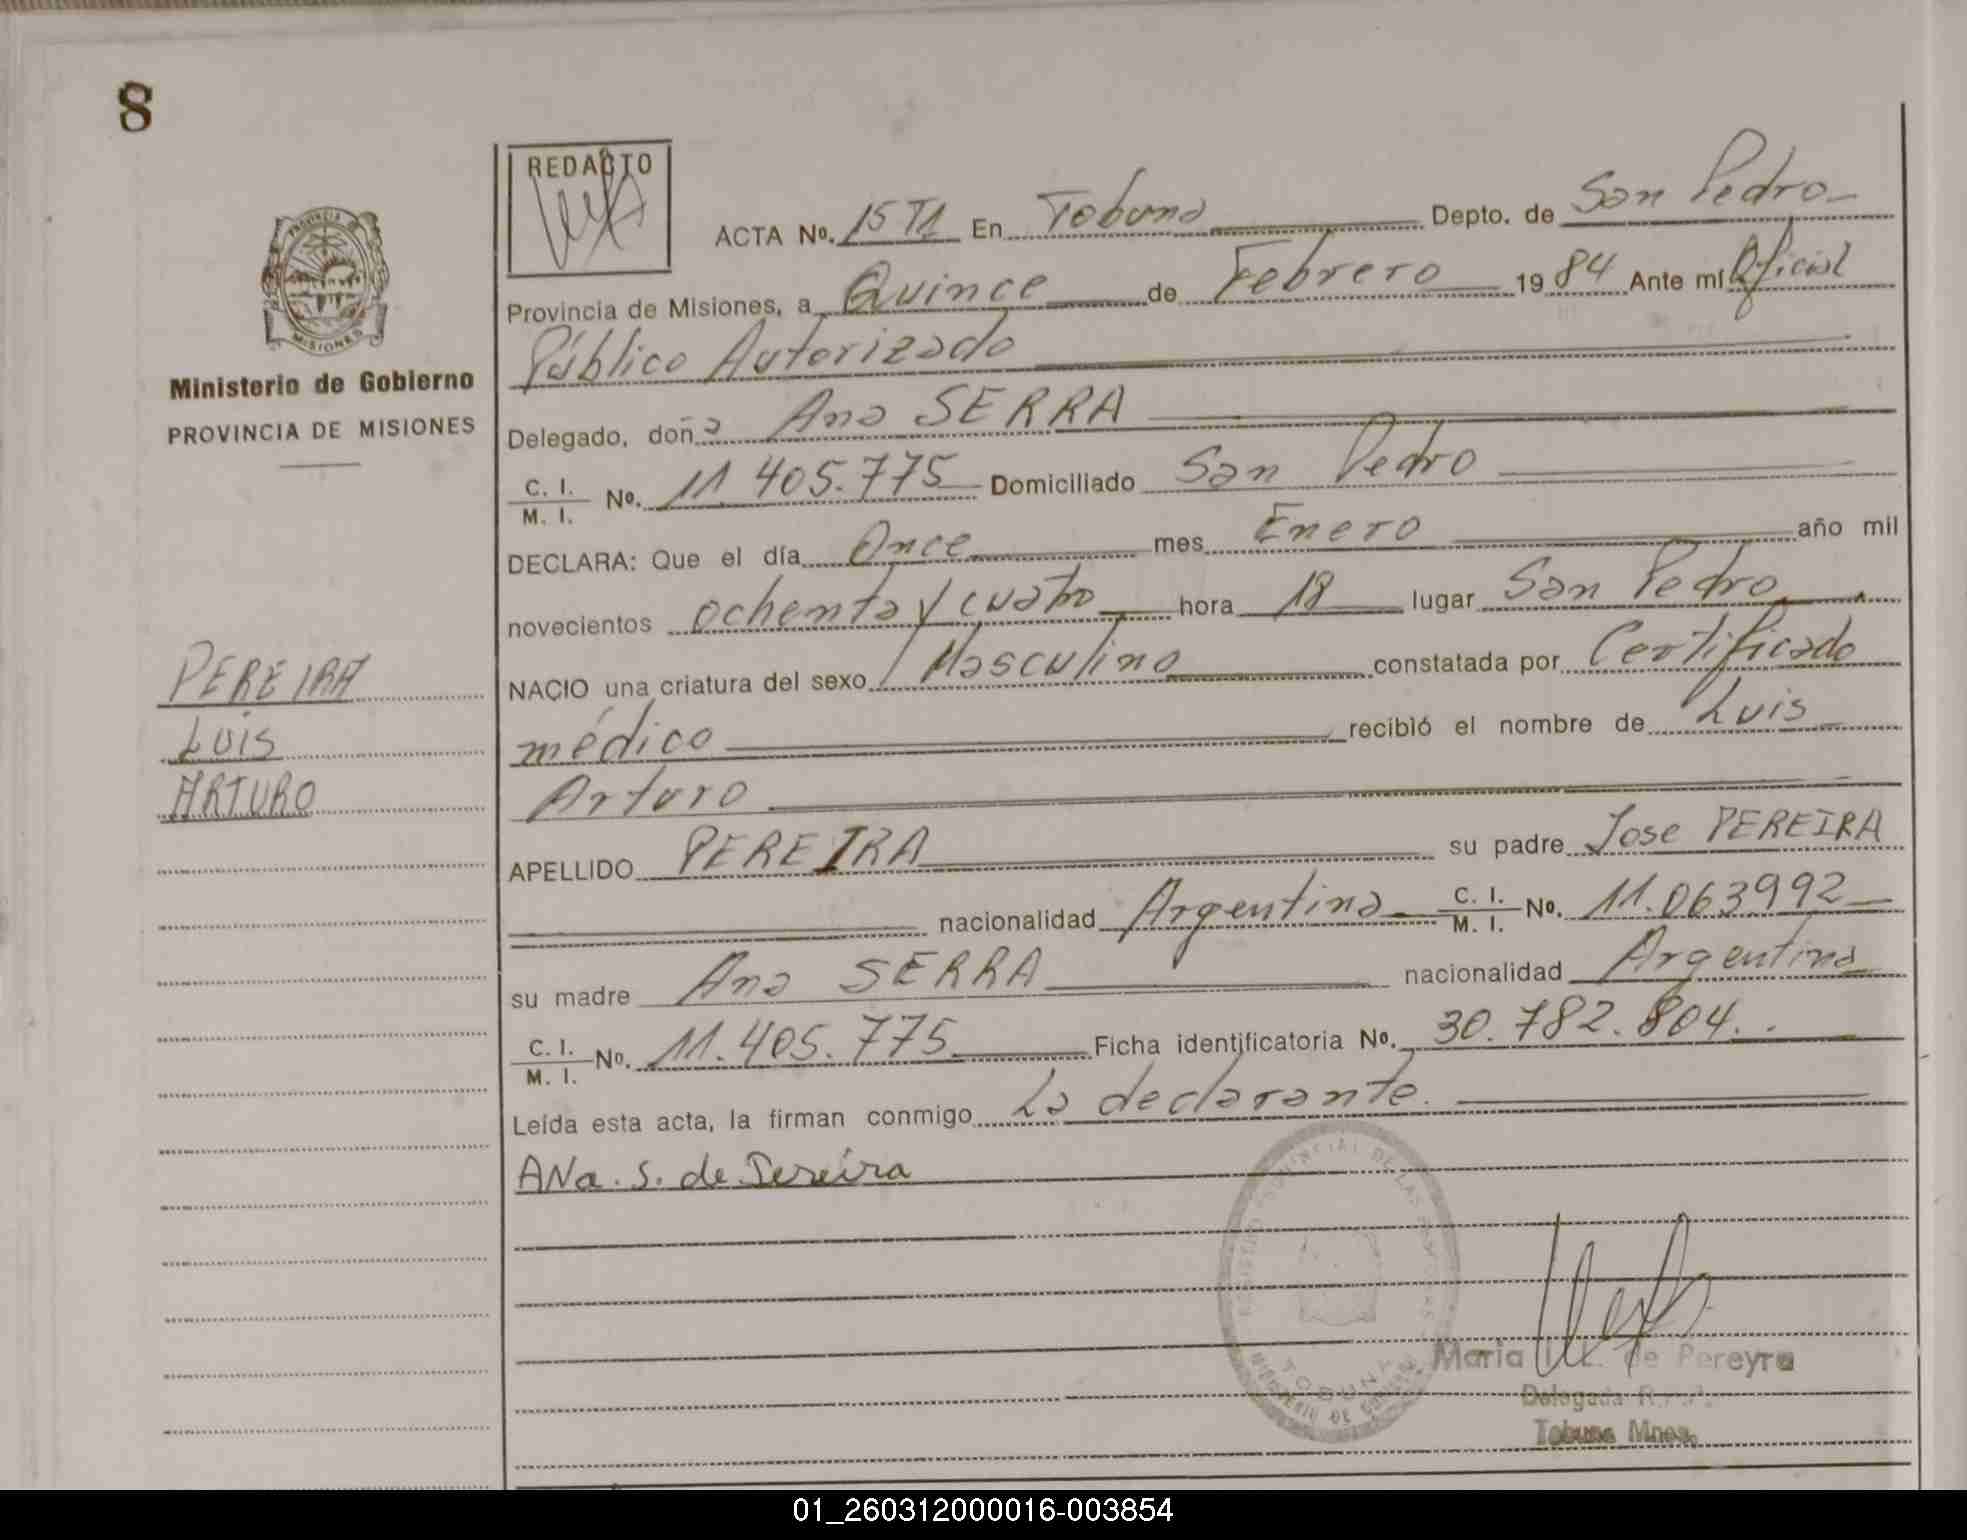 8
REDACTO
ACTA Nº. 15 T1 En Tobuna Depto. de San Pedro
Provincia de Misiones, a Quince de Febrero 1984 Ante mí Oficial
Público Autorizado
Delegado, doña Ana SERRA
C. I. / M. I. Nº. 11.405.775 Domiciliado San Pedro
DECLARA: Que el día Once mes Enero año mil
novecientos ochenta y cuatro hora 18 lugar San Pedro
NACIO una criatura del sexo Masculino constatada por Certificado
médico recibió el nombre de Luis
Arturo
APELLIDO PEREIRA su padre Jose PEREIRA
nacionalidad Argentina C. I. / M. I. Nº. 11.063992
su madre Ana SERRA nacionalidad Argentina
C. I. / M. I. Nº. 11.405.775 Ficha identificatoria Nº. 30.782.804.
Leída esta acta, la firman conmigo La declarante.
ANa. S. de Pereira
PROVINCIA
MISIONES
Ministerio de Gobierno
PROVINCIA DE MISIONES
PEREIRA
LUIS
ARTURO
PROVINCIAL DE LAS PERSONAS
TOBUNA
MINISTERIO DE GOBIERNO
Maria L. de Pereyra
Delegada
Tobuna Mnes.
01_260312000016-003854